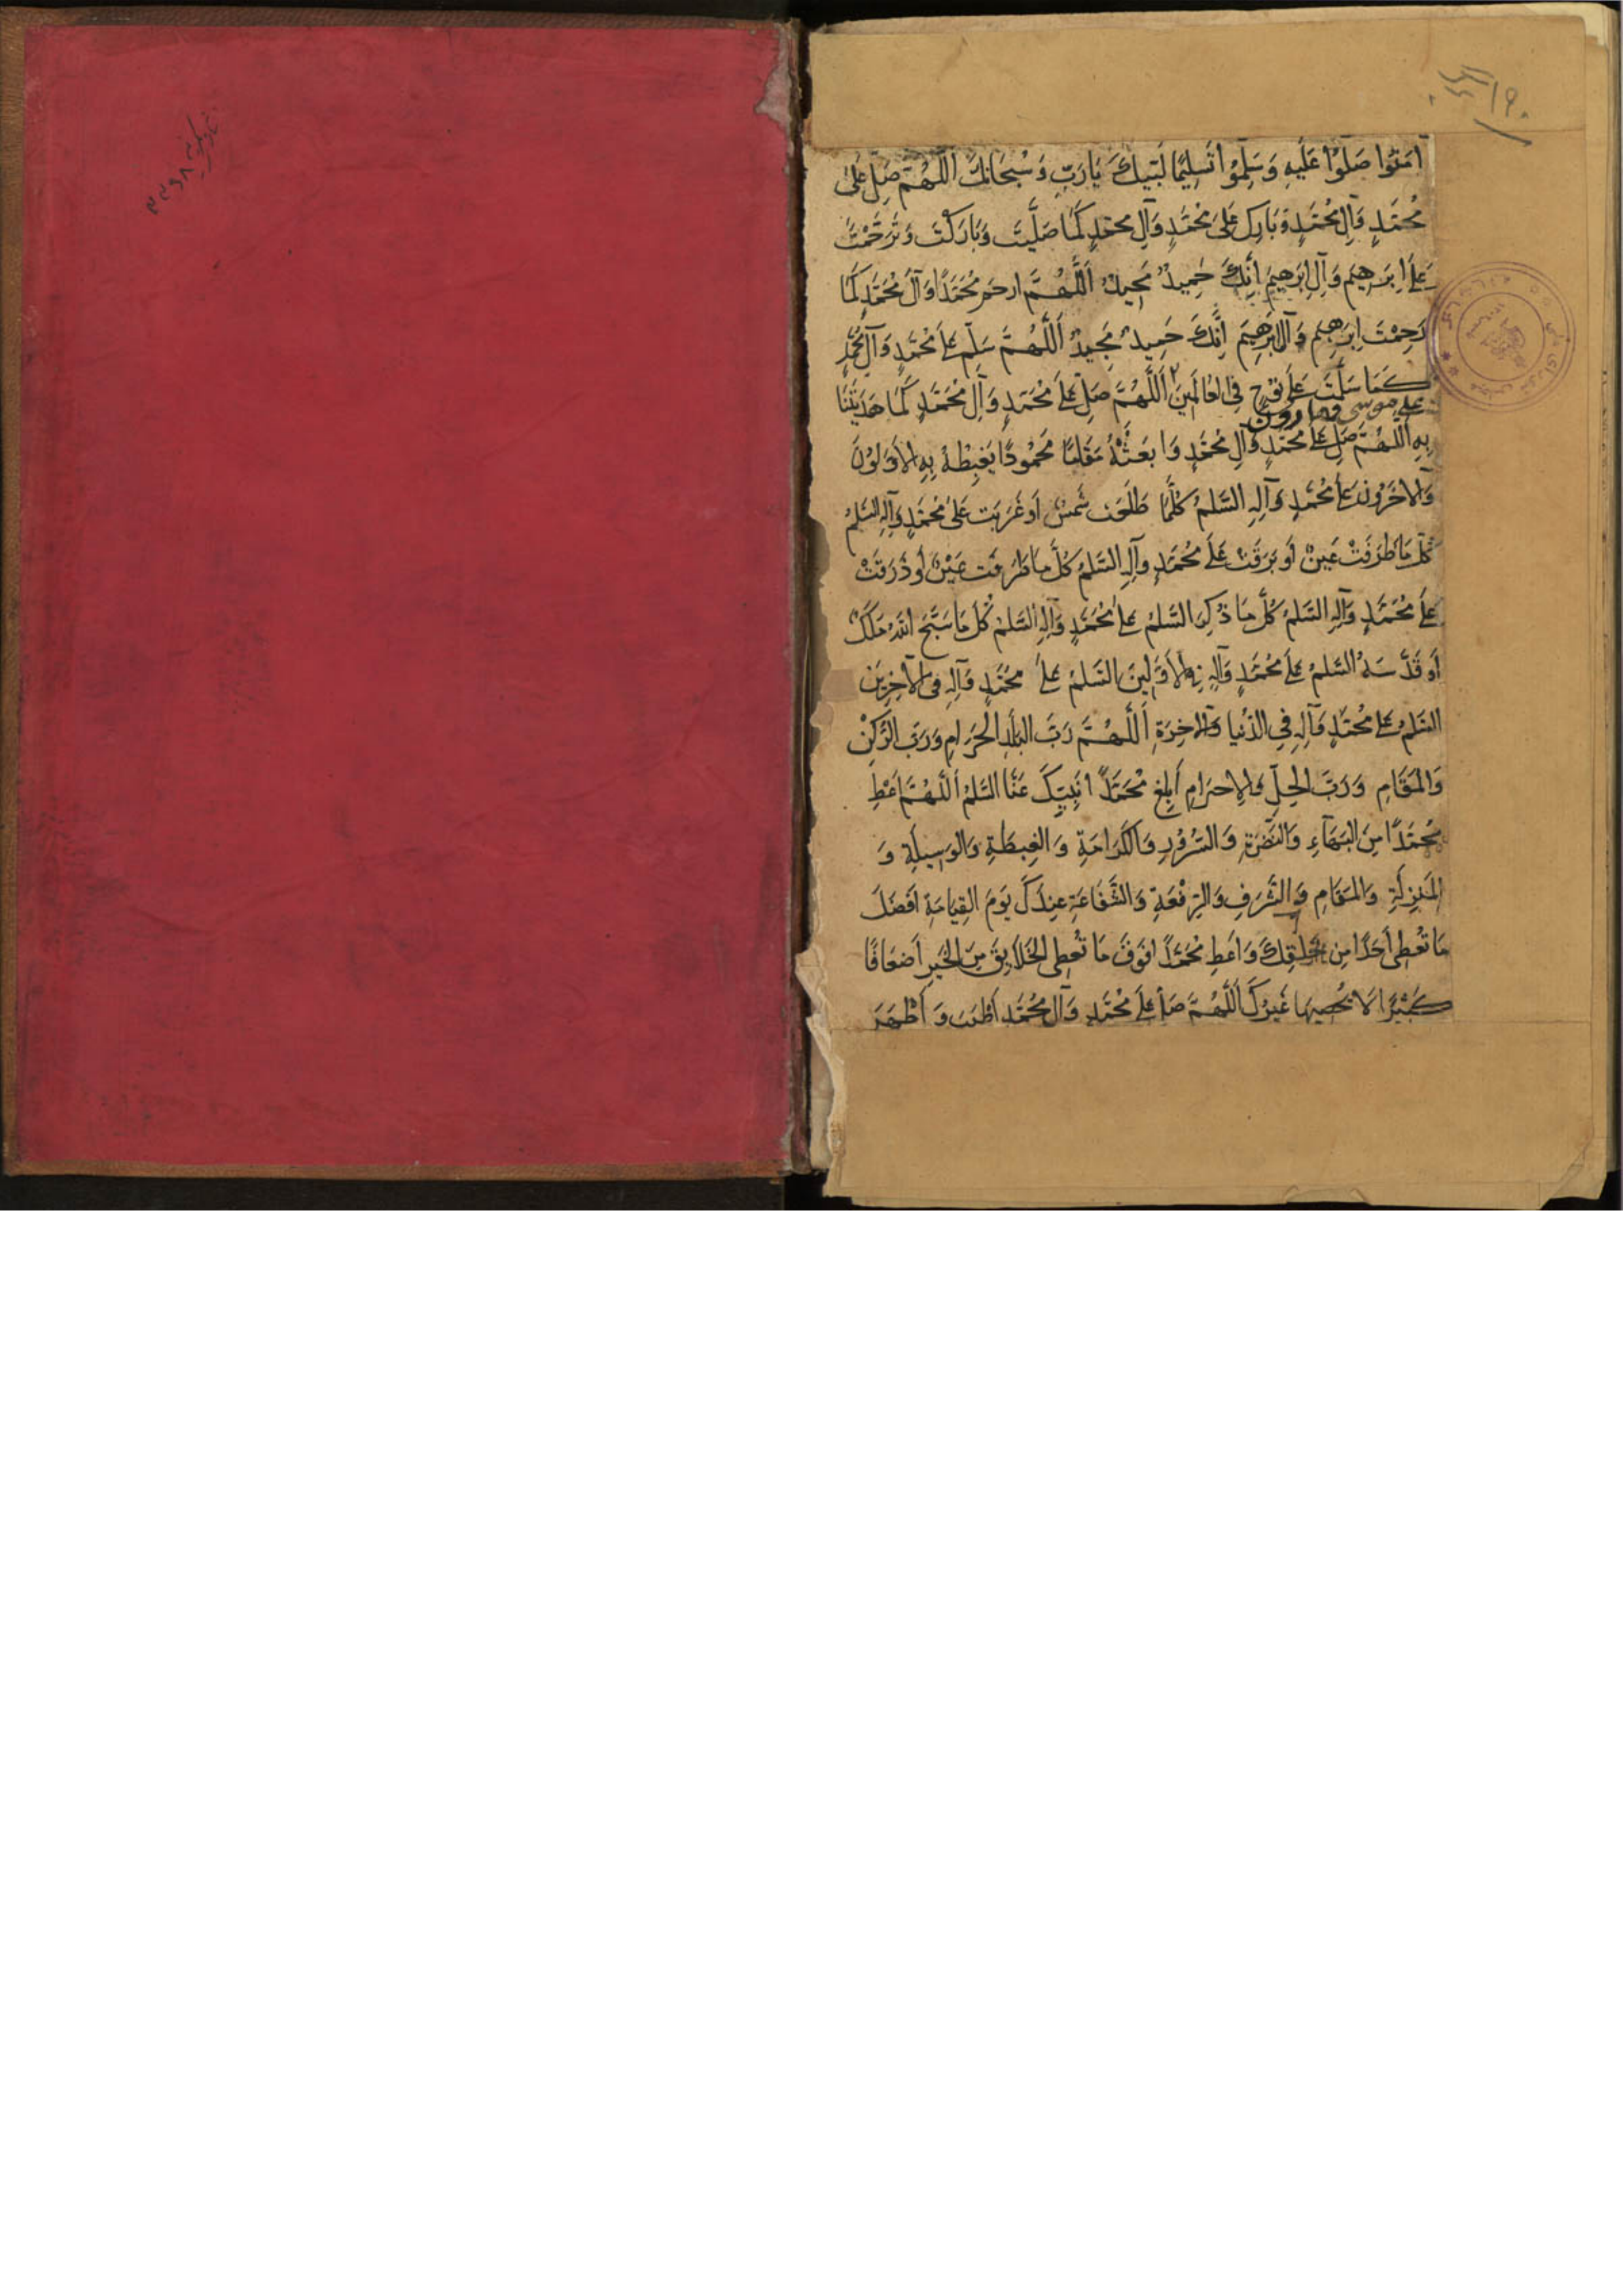 آمَنُوا صَلُّوا عَلَيهِ وَسَلِّمُوا تَسلِيمًا لَبَّيكَ يَا رَبِّ وَسُبحَانَكَ اَللّٰهُمَّ صَلِّ عَلىٰ
مُحَمَّدٍ وَآلِ مُحَمَّدٍ وَبَارِك عَلىٰ مُحَمَّدٍ وَآلِ مُحَمَّدٍ كَمَا صَلَّيتَ وَبَارَكْتَ وَتَرَحَّمْتَ
عَلىٰ اِبرَهِيمَ وَآلِ اِبرَهِيمَ اِنَّكَ حَمِيدٌ مَجِيدٌ اَللّٰهُمَّ ارحَم مُحَمَّدًا وَآلَ مُحَمَّدٍ كَمَا
رَحِمْتَ اِبرَهِيمَ وَآلَ اِبرَهِيمَ اِنَّكَ حَمِيدٌ مَجِيدٌ اَللّٰهُمَّ سَلِّم عَلىٰ مُحَمَّدٍ وَآلِ مُحَمَّدٍ
كَمَا سَلَّمتَ عَلىٰ نُوْحٍ فِي العَالَمِينَ اَللّٰهُمَّ صَلِّ عَلىٰ مُحَمَّدٍ وَآلِ مُحَمَّدٍ كَمَا هَدَيتَنَا
على موسى وهارون
بِهِ اَللّٰهُمَّ صَلِّ عَلىٰ مُحَمَّدٍ وَآلِ مُحَمَّدٍ وَابعَثْهُ مَقَامًا مَحمُودًا يَغبِطُهُ بِهِ الاَوَّلُونَ
وَالآخِرُونَ عَلىٰ مُحَمَّدٍ وَآلِهِ السَّلمُ كُلَّمَا طَلَعَت شَمسٌ اَو غَرَبَت عَلىٰ مُحَمَّدٍ وَآلِهِ السَّلمُ
كُلَّ مَا طَرَفَتْ عَينٌ اَو بَرَقَتْ عَلىٰ مُحَمَّدٍ وَآلِهِ السَّلمُ كُلَّ مَا طَرَفَت عَيْنٌ اَو ذَرَفَتْ
عَلىٰ مُحَمَّدٍ وَآلِهِ السَّلمُ كُلَّ مَا ذُكِرَ السَّلمُ عَلىٰ مُحَمَّدٍ وَآلِهِ السَّلمُ كُلَّ مَا سَبَّحَ اللهَ مَلَكٌ
اَو قَدَّسَهُ السَّلمُ عَلىٰ مُحَمَّدٍ وَآلِهِ فِي الاَوَّلِينَ السَّلمُ عَلىٰ مُحَمَّدٍ وَآلِهِ فِي الآخِرِينَ
السَّلمُ عَلىٰ مُحَمَّدٍ وَآلِهِ فِي الدُّنيا وَالآخِرَةِ اَللّٰهُمَّ رَبَّ البَلَدِ الحَرَامِ وَرَبَّ الرُّكْنِ
وَالمَقَامِ وَرَبَّ الحِلِّ وَالاِحرَامِ اَبلِغ مُحَمَّدًا نَبِيَّكَ عَنَّا السَّلمَ اَللّٰهُمَّ اَعْطِ
مُحَمَّدًا مِنَ البَهَآءِ وَالنَّضرَةِ وَالسُّرُورِ وَالكَرَامَةِ وَالغِبطَةِ وَالوَسِيلَةِ وَ
المَنزِلَةِ وَالمَقَامِ وَالشَّرَفِ وَالرِّفْعَةِ وَالشَّفَاعَةِ عِندَكَ يَومَ القِيَامَةِ اَفضَلَ
مَا تُعطِي اَحَدًا مِن خَلقِكَ وَاَعطِ مُحَمَّدًا فَوقَ مَا تُعطِي الخَلَايِقَ مِنَ الخَيرِ اَضعَافًا
كَثِيرًا لَا يُحصِيهَا غَيرُكَ اَللّٰهُمَّ صَلِّ عَلىٰ مُحَمَّدٍ وَآلِ مُحَمَّدٍ اَطيَبَ وَاَطهَرَ